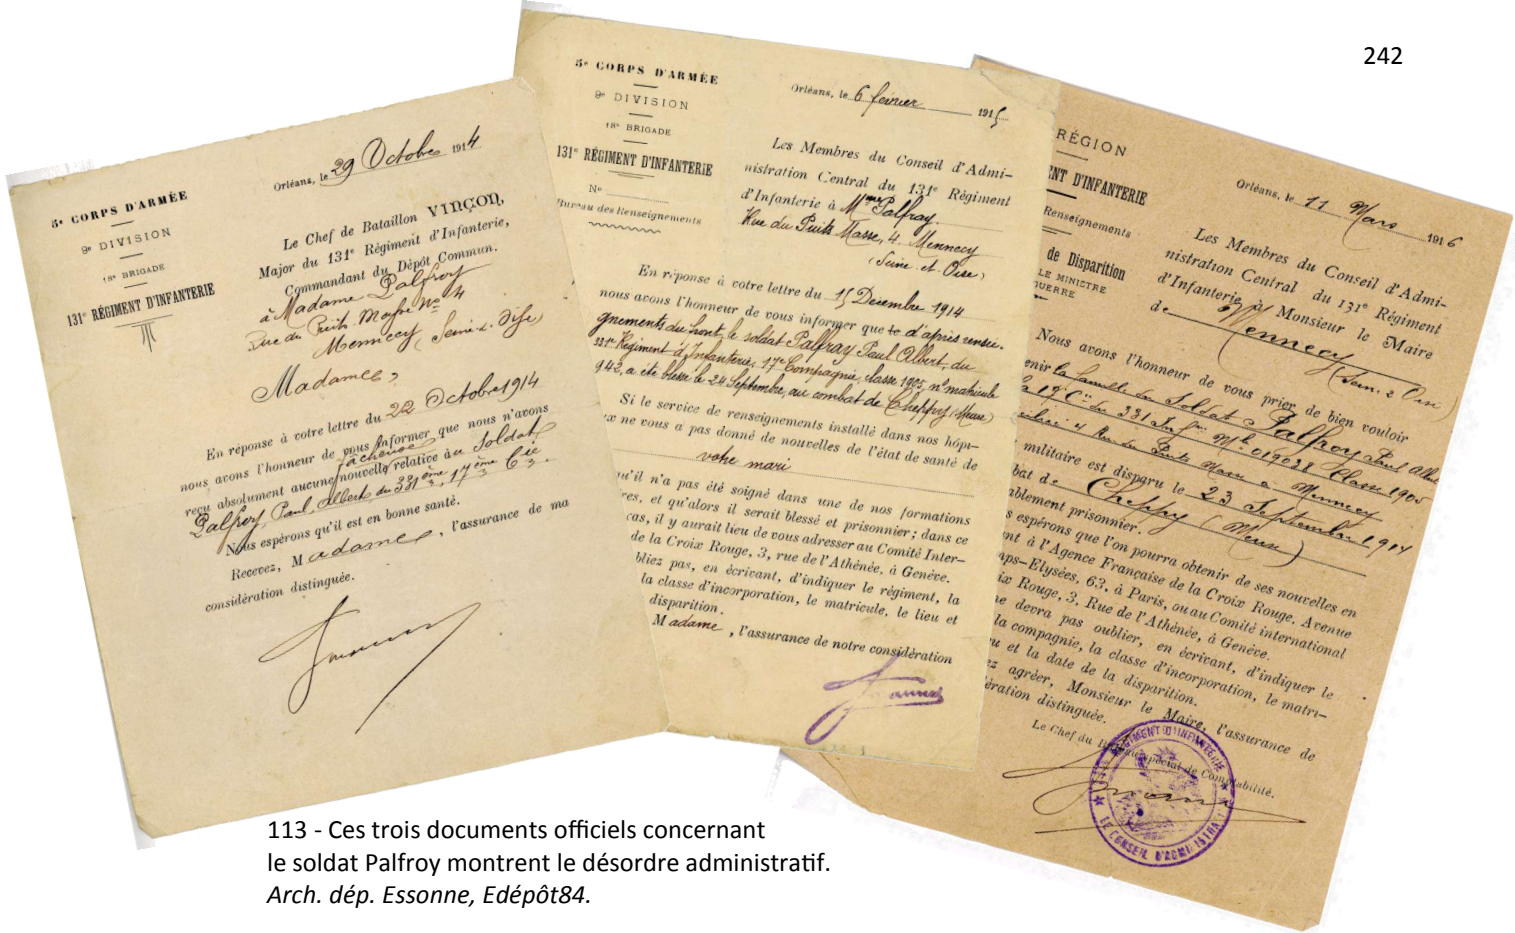 242
5e CORPS D'ARMÉE
9e DIVISION
18e BRIGADE
131e RÉGIMENT D'INFANTERIE
Orléans, le 29 Octobre 1914
Le Chef de Bataillon VINÇON,
Major du 131e Régiment d'Infanterie,
Commandant du Dépôt Commun.
à Madame Palfroy
Rue du Puits Massé No 4
Mennecy (Seine & Oise)
Madame,
En réponse à votre lettre du 22 Octobre 1914
nous avons l'honneur de vous informer que nous n'avons
reçu absolument aucune nouvelle fâcheuse relative au Soldat
Palfroy, Paul Albert du 331ème, 17ème Cie
Nous espérons qu'il est en bonne santé.
Recevez, Madame, l'assurance de ma
considération distinguée.
5e CORPS D'ARMÉE
9e DIVISION
18e BRIGADE
131e RÉGIMENT D'INFANTERIE
No
Bureau des Renseignements
Orléans, le 6 février 1915
Les Membres du Conseil d'Admi-
nistration Central du 131e Régiment
d'Infanterie à Mme Palfray
Rue du Puits Masse, 4. Mennecy
(Seine et Oise)
En réponse à votre lettre du 15 Décembre 1914
nous avons l'honneur de vous informer que d'après rensei-
gnements du front, le soldat Palfray Paul Albert, du
331e Régiment d'Infanterie, 17e Compagnie, classe 1905, no matricule
942, a été blessé le 24 Septembre, au combat de Cheppy (Meuse)
Si le service de renseignements installé dans nos hôpi-
x ne vous a pas donné de nouvelles de l'état de santé de
votre mari
qu'il n'a pas été soigné dans une de nos formations
res, et qu'alors il serait blessé et prisonnier ; dans ce
cas, il y aurait lieu de vous adresser au Comité Inter-
de la Croix Rouge, 3, rue de l'Athénée, à Genève.
bliez pas, en écrivant, d'indiquer le régiment, la
la classe d'incorporation, le matricule, le lieu et
disparition.
Madame, l'assurance de notre considération
RÉGION
NT D'INFANTERIE
Renseignements
de Disparition
LE MINISTRE
GUERRE
Orléans, le 11 Mars 1916
Les Membres du Conseil d'Admi-
nistration Central du 131e Régiment
d'Infanterie, à Monsieur le Maire
de Mennecy
(Seine & Oise)
Nous avons l'honneur de vous prier de bien vouloir
enir la famille du Soldat Palfroy Paul Albert
19e Cie du 331 Inf Mle 019038 Classe 1905
4 Rue du Puits Masse à Mennecy
militaire est disparu le 23 Septembre 1914
bat de Cheppy (Meuse)
blement prisonnier.
s espérons que l'on pourra obtenir de ses nouvelles en
nt à l'Agence Française de la Croix Rouge, Avenue
mps-Elysées, 63, à Paris, ou au Comité international
ix Rouge, 3, Rue de l'Athénée, à Genève.
ne devra pas oublier, en écrivant, d'indiquer le
la compagnie, la classe d'incorporation, le matri-
u et la date de la disparition.
ez agréer, Monsieur le Maire, l'assurance de
ération distinguée.
Le Chef du Bureau spécial de Comptabilité.
RÉGIMENT D'INFANTERIE
LE CONSEIL D'ADMINISTRA
113 - Ces trois documents officiels concernant
le soldat Palfroy montrent le désordre administratif.
Arch. dép. Essonne, Edépôt84.